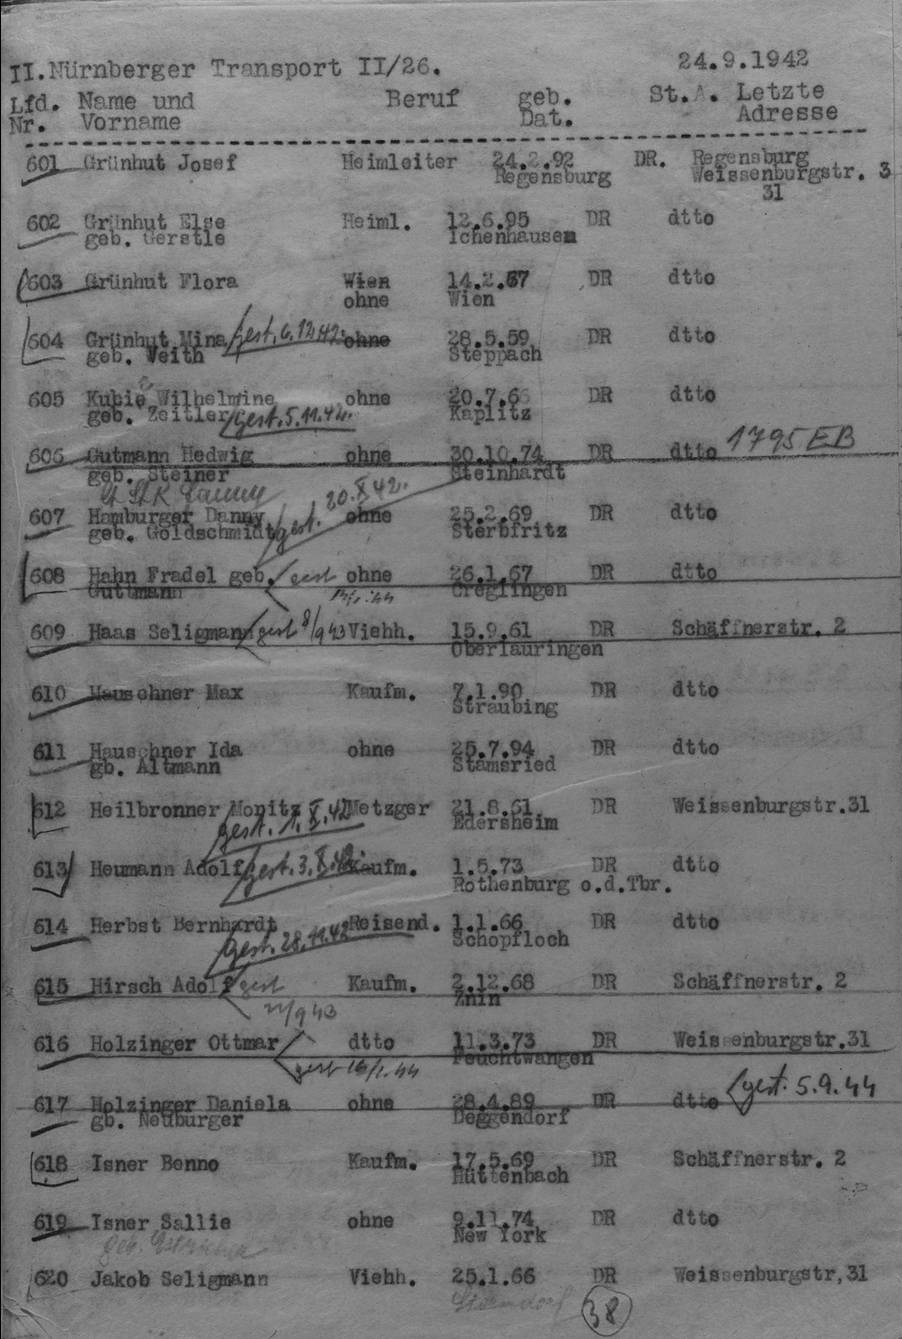 II.Nürnberger Transport II/26. 24.9.1942
Lfd. Name und Beruf geb. St.A. Letzte
Nr. Vorname Dat. Adresse
601 Grünhut Josef Heimleiter 24.2.92 DR. Regensburg
Regensburg Weissenburgstr. 3
31
602 Grünhut Else Heiml. 12.6.95 DR dtto
geb. Gerstle Ichenhausen
603 Grünhut Flora Wien 14.2.67 DR dtto
ohne Wien
604 Grünhut Mina gest. 6.12.42. ohne 28.5.59 DR dtto
geb. Veith Steppach
605 Kubie Wilhelmine ohne 20.7.66 DR dtto
geb. Zeitler gest. 5.11.42. Kaplitz
606 Gutmann Hedwig ohne 30.10.74 DR dtto 1795 EB
geb. Steiner Steinhardt
607 Hamburger Danny gest. 20.X.42. ohne 25.2.69 DR dtto
geb. Goldschmidt Sterbfritz
608 Hahn Fradel geb. gest ohne 26.1.67 DR dtto
Guttmann Creglingen
609 Haas Seligmann gest 8/9 43 Viehh. 15.9.61 DR Schäffnerstr. 2
Oberlauringen
610 Hauschner Max Kaufm. 7.1.90 DR dtto
Straubing
611 Hauschner Ida ohne 25.7.94 DR dtto
gb. Altmann Stamsried
612 Heilbronner Moritz Metzger 21.8.61 DR Weissenburgstr.31
gest. 1.X.42 Edersheim
613 Heumann Adolf gest. 3.X.42. Kaufm. 1.5.73 DR dtto
Rothenburg o.d.Tbr.
614 Herbst Bernhardt Reisend. 1.1.66 DR dtto
gest. 28.11.42 Schopfloch
615 Hirsch Adolf gest Kaufm. 2.12.68 DR Schäffnerstr. 2
/9 43 Znin
616 Holzinger Ottmar dtto 11.3.73 DR Weissenburgstr.31
gest 16/1.44 Feuchtwangen
617 Holzinger Daniela ohne 28.4.89 DR dtto gest. 5.9.44
gb. Neuburger Deggendorf
618 Isner Benno Kaufm. 17.5.69 DR Schäffnerstr. 2
Hüttenbach
619 Isner Sallie ohne 9.11.74 DR dtto
geb. New York
620 Jakob Seligmann Viehh. 25.1.66 DR Weissenburgstr,31
38